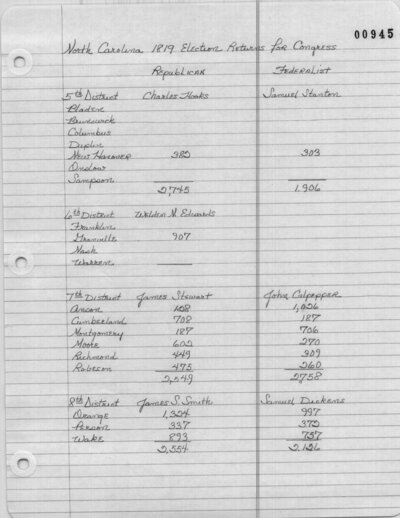 00945
North Carolina 1819 Election Returns for Congress
Republican Federalist
5th District Charles Hooks Samuel Stanton
Bladen
Brunswick
Columbus
Duplin
New Hanover 382 303
Onslow
Sampson
2,745 1,906
6th District Weldon N. Edwards
Franklin
Granville 907
Nash
Warren
7th District James Stewart John Culpepper
Anson 128 1,026
Cumberland 708 187
Montgomery 187 706
Moore 602 270
Richmond 449 309
Robeson 475 260
2,549 2,758
8th District James S. Smith Samuel Dickens
Orange 1,324 997
Person 337 372
Wake 893 757
2,554 2,126